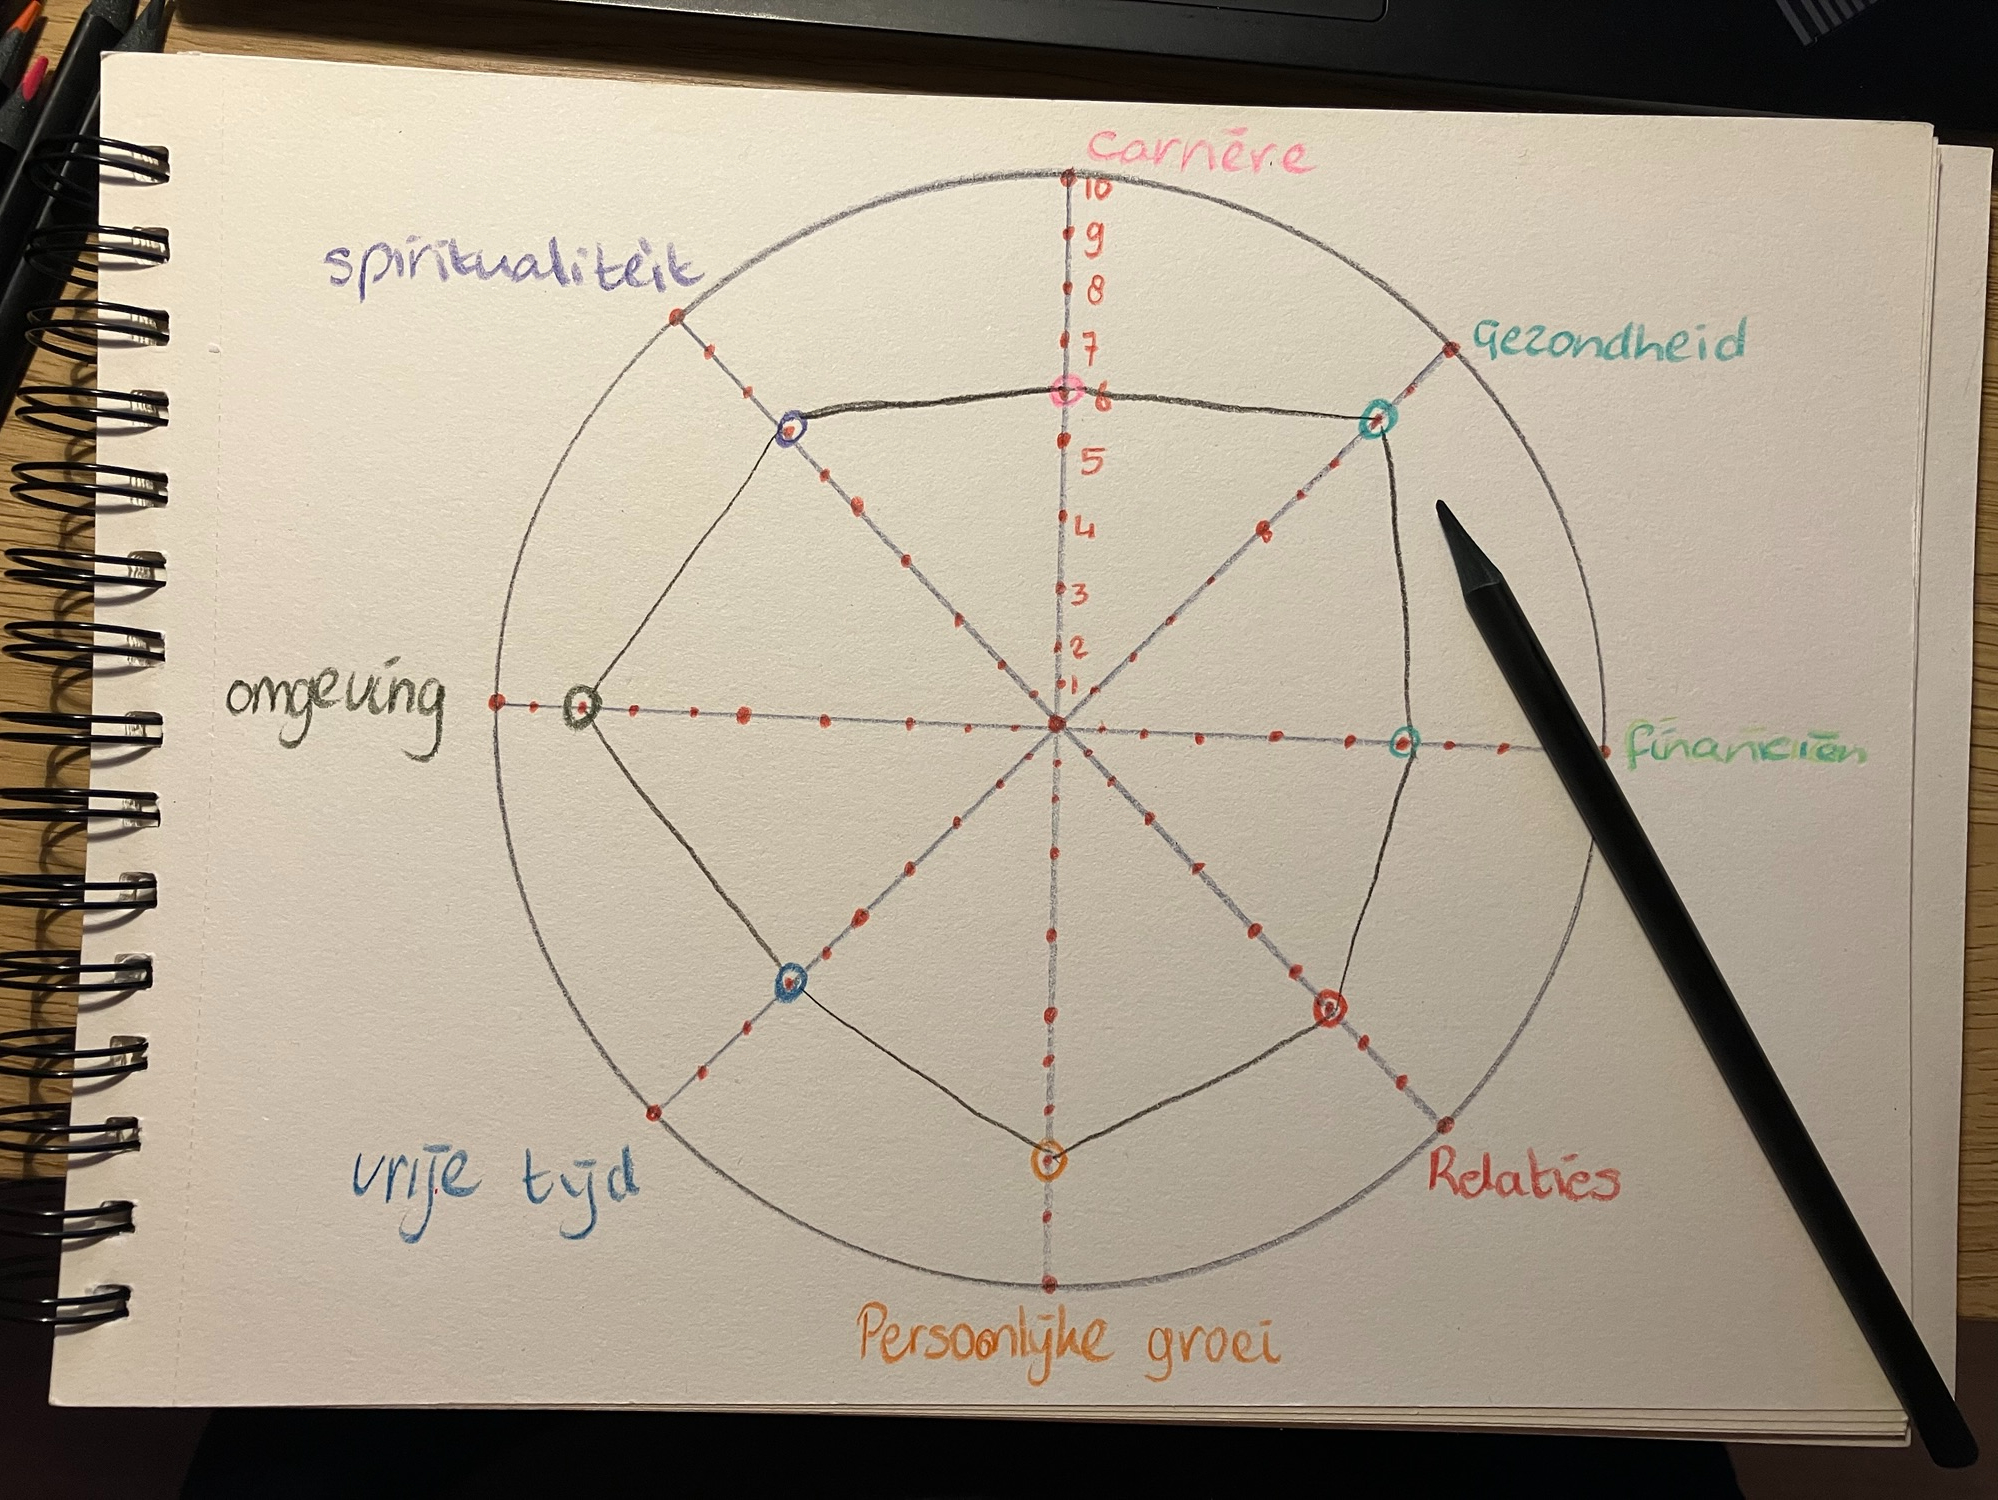 carrière
10
9
8
7
6
5
4
3
2
1
spiritualiteit
Gezondheid
omgeving
financiën
vrije tijd
Relaties
Persoonlijke groei